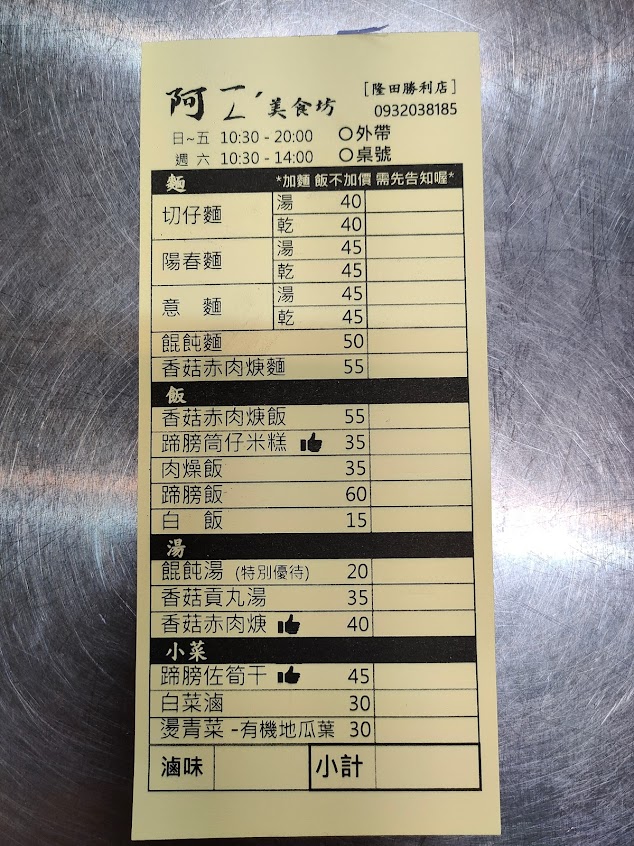 阿ㄧㄥˊ美食坊 [隆田勝利店]
0932038185
日~五 10:30 - 20:00 ○外帶
週 六 10:30 - 14:00 ○桌號
麵 *加麵 飯不加價 需先告知喔*
切仔麵 湯 40
乾 40
陽春麵 湯 45
乾 45
意 麵 湯 45
乾 45
餛飩麵 50
香菇赤肉焿麵 55
飯
香菇赤肉焿飯 55
蹄膀筒仔米糕 35
肉燥飯 35
蹄膀飯 60
白 飯 15
湯
餛飩湯 (特別優待) 20
香菇貢丸湯 35
香菇赤肉焿 40
小菜
蹄膀佐筍干 45
白菜滷 30
燙青菜 -有機地瓜葉 30
滷味 小計